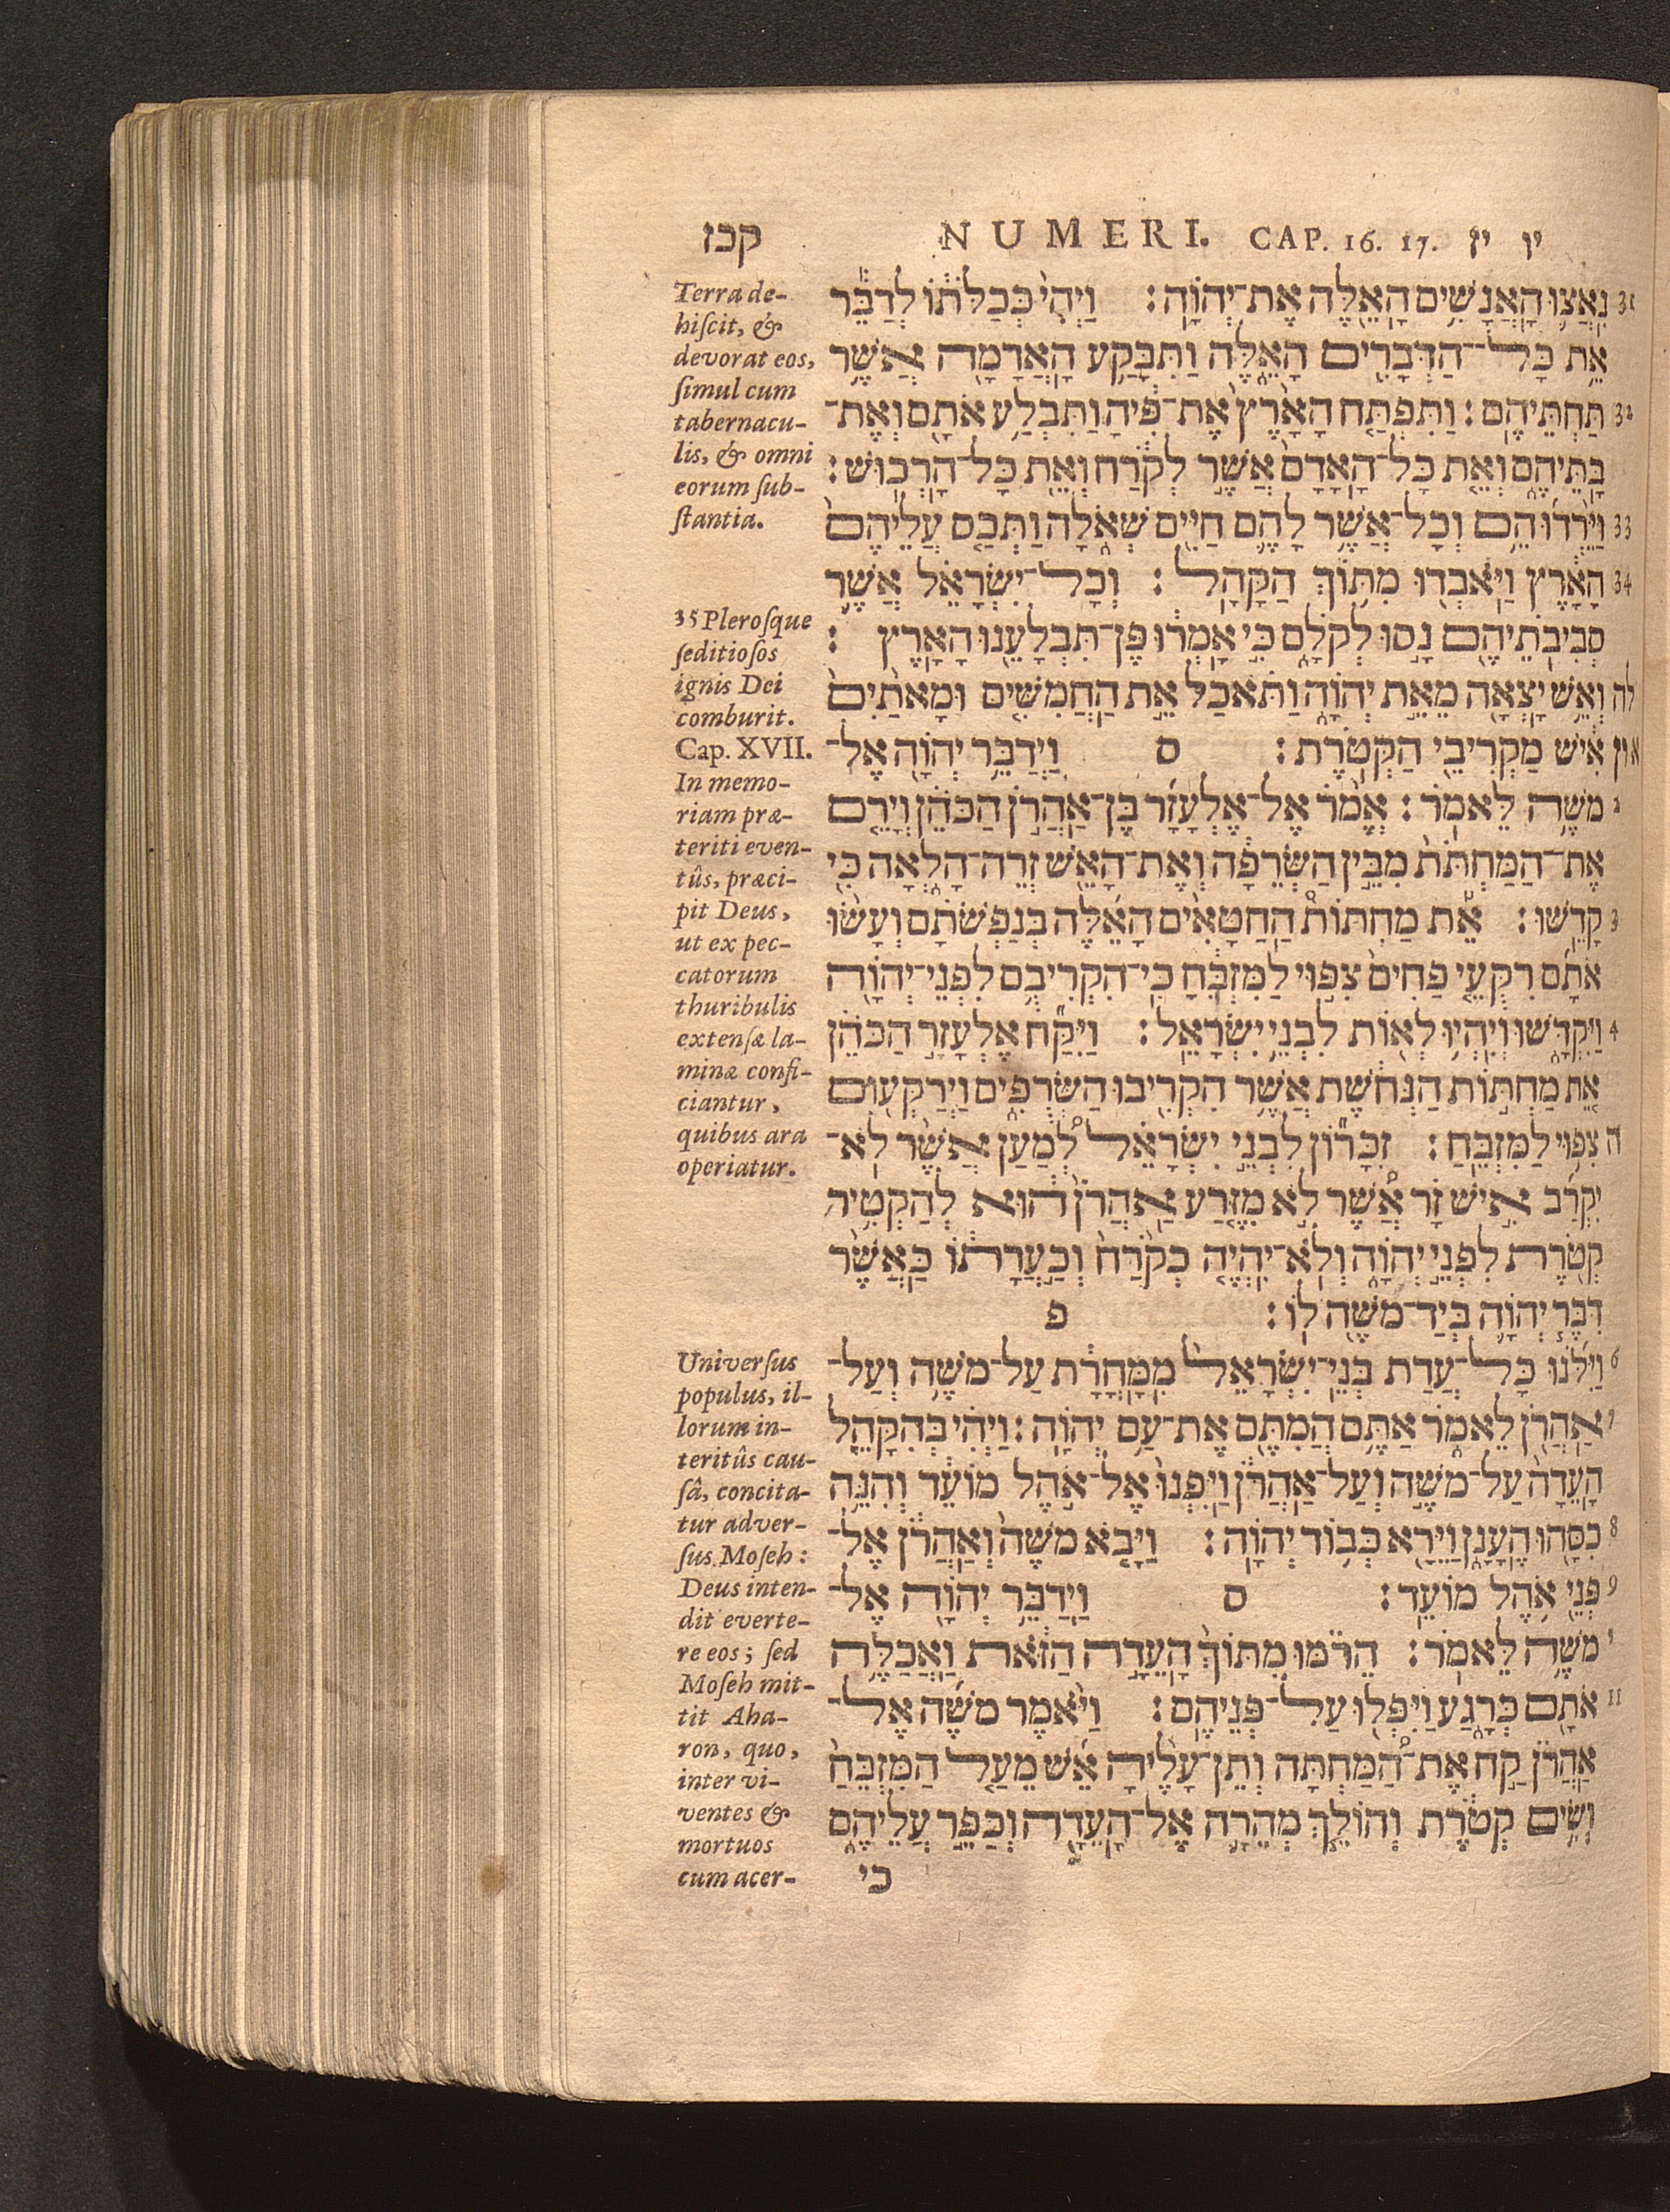 קכז
NUMERI. CAP. 16. 17. יו יז
Terra de-
hiſcit, &
devorat eos,
ſimul cum
tabernacu-
lis, & omni
eorum ſub-
ſtantia.
35 Pleroſque
ſeditioſos
ignis Dei
comburit.
Cap. XVII.
In memo-
riam præ-
teriti even-
tûs, præci-
pit Deus,
ut ex pec-
catorum
thuribulis
extenſæ la-
minæ confi-
ciantur,
quibus ara
operiatur.
Univerſus
populus, il-
lorum in-
teritûs cau-
ſâ, concita-
tur adver-
ſus Moſeh:
Deus inten-
dit everte-
re eos; ſed
Moſeh mit-
tit Aha-
ron, quo,
inter vi-
ventes &
mortuos
cum acer-
31 נִֽאֲצ֛וּ הָאֲנָשִׁ֥ים הָאֵ֖לֶּה אֶת־יְהוָֽה׃ וַיְהִי֙ כְּכַלֹּת֔וֹ לְדַבֵּ֕ר
אֵ֥ת כָּל־הַדְּבָרִ֖ים הָאֵ֑לֶּה וַתִּבָּקַ֥ע הָאֲדָמָ֖ה אֲשֶׁ֥ר
32 תַּחְתֵּיהֶֽם׃ וַתִּפְתַּ֤ח הָאָ֙רֶץ֙ אֶת־פִּ֔יהָ וַתִּבְלַ֥ע אֹתָ֖ם וְאֶת־
בָּתֵּיהֶ֑ם וְאֵ֤ת כָּל־הָאָדָם֙ אֲשֶׁ֣ר לְקֹ֔רַח וְאֵ֖ת כָּל־הָרְכֽוּשׁ׃
33 וַיֵּ֨רְד֜וּ הֵ֣ם וְכָל־אֲשֶׁ֥ר לָהֶ֛ם חַיִּ֖ים שְׁאֹ֑לָה וַתְּכַ֤ס עֲלֵיהֶם֙
34 הָאָ֔רֶץ וַיֹּאבְד֖וּ מִתּ֥וֹךְ הַקָּהָֽל׃ וְכָל־יִשְׂרָאֵ֗ל אֲשֶׁ֛ר
סְבִיבֹתֵיהֶ֖ם נָ֣סוּ לְקֹלָ֑ם כִּ֣י אָֽמְר֔וּ פֶּן־תִּבְלָעֵ֖נוּ הָאָֽרֶץ׃
לה וְאֵ֥שׁ יָצְאָ֖ה מֵאֵ֣ת יְהוָ֑ה וַתֹּ֗אכַל אֵ֣ת הַחֲמִשִּׁ֤ים וּמָאתַ֙יִם֙
א יז אִ֔ישׁ מַקְרִיבֵ֖י הַקְּטֹֽרֶת׃ ס וַיְדַבֵּ֥ר יְהוָ֖ה אֶל־
2 מֹשֶׁ֥ה לֵּאמֹֽר׃ אֱמֹ֨ר אֶל־אֶלְעָזָ֜ר בֶּן־אַהֲרֹ֣ן הַכֹּהֵ֗ן וְיָרֵ֤ם
אֶת־הַמַּחְתֹּת֙ מִבֵּ֣ין הַשְּׂרֵפָ֔ה וְאֶת־הָאֵ֖שׁ זְרֵה־הָ֑לְאָה כִּ֖י
3 קָדֵֽשׁוּ׃ אֵ֡ת מַחְתּוֹת֩ הַֽחַטָּאִ֨ים הָאֵ֜לֶּה בְּנַפְשֹׁתָ֗ם וְעָשׂ֨וּ
אֹתָ֜ם רִקֻּעֵ֤י פַחִים֙ צִפּ֣וּי לַמִּזְבֵּ֔חַ כִּֽי־הִקְרִיבֻ֥ם לִפְנֵֽי־יְהוָ֖ה
4 וַיִּקְדָּ֑שׁוּ וְיִֽהְי֥וּ לְא֖וֹת לִבְנֵ֥י יִשְׂרָאֵֽל׃ וַיִּקַּ֞ח אֶלְעָזָ֣ר הַכֹּהֵ֗ן
אֵ֚ת מַחְתּ֣וֹת הַנְּחֹ֔שֶׁת אֲשֶׁ֥ר הִקְרִ֖יבוּ הַשְּׂרֻפִ֑ים וַֽיְרַקְּע֖וּם
ה צִפּ֥וּי לַמִּזְבֵּֽחַ׃ זִכָּר֞וֹן לִבְנֵ֣י יִשְׂרָאֵ֗ל לְ֠מַעַן אֲשֶׁ֨ר לֹֽא־
יִקְרַ֜ב אִ֣ישׁ זָ֗ר אֲ֠שֶׁר לֹ֣א מִזֶּ֤רַע אַהֲרֹן֙ ה֔וּא לְהַקְטִ֥יר
קְטֹ֖רֶת לִפְנֵ֣י יְהוָ֑ה וְלֹֽא־יִהְיֶ֤ה כְקֹ֙רַח֙ וְכַ֣עֲדָת֔וֹ כַּאֲשֶׁ֨ר
דִּבֶּ֧ר יְהוָ֛ה בְּיַד־מֹשֶׁ֖ה לֽוֹ׃ פ
6 וַיִּלֹּ֜נוּ כָּל־עֲדַ֤ת בְּנֵֽי־יִשְׂרָאֵל֙ מִֽמָּחֳרָ֔ת עַל־מֹשֶׁ֥ה וְעַֽל־
7 אַהֲרֹ֖ן לֵאמֹ֑ר אַתֶּ֥ם הֲמִתֶּ֖ם אֶת־עַ֥ם יְהוָֽה׃ וַיְהִ֗י בְּהִקָּהֵ֤ל
הָֽעֵדָה֙ עַל־מֹשֶׁ֣ה וְעַֽל־אַהֲרֹ֔ן וַיִּפְנוּ֙ אֶל־אֹ֣הֶל מוֹעֵ֔ד וְהִנֵּ֥ה
8 כִסָּ֖הוּ הֶעָנָ֑ן וַיֵּרָ֖א כְּב֥וֹד יְהוָֽה׃ וַיָּבֹ֤א מֹשֶׁה֙ וְאַהֲרֹ֔ן אֶל־
9 פְּנֵ֖י אֹ֥הֶל מוֹעֵֽד׃ ס וַיְדַבֵּ֥ר יְהוָ֖ה אֶל־
י מֹשֶׁ֥ה לֵּאמֹֽר׃ הֵרֹ֗מּוּ מִתּוֹךְ֙ הָעֵדָ֣ה הַזֹּ֔את וַאֲכַלֶּ֥ה
11 אֹתָ֖ם כְּרָ֑גַע וַֽיִּפְּל֖וּ עַל־פְּנֵיהֶֽם׃ וַיֹּ֨אמֶר מֹשֶׁ֜ה אֶֽל־
אַהֲרֹ֗ן קַ֣ח אֶת־הַ֠מַּחְתָּה וְתֶן־עָלֶ֨יהָ אֵ֜שׁ מֵעַ֤ל הַמִּזְבֵּ֙חַ֙
וְשִׂ֣ים קְטֹ֔רֶת וְהוֹלֵ֧ךְ מְהֵרָ֛ה אֶל־הָעֵדָ֖ה וְכַפֵּ֣ר עֲלֵיהֶ֑ם
כי